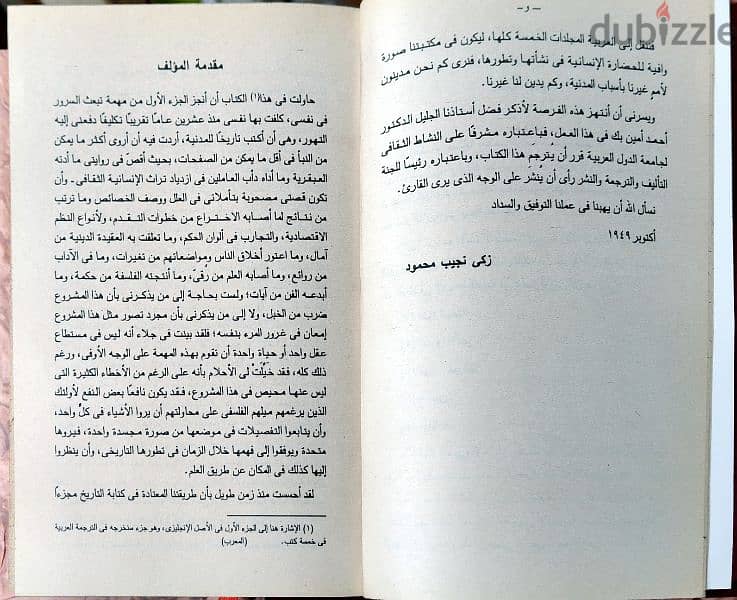 — و —
فننقل إلى العربية المجلدات الخمسة كلها، ليكون فى مكتبتنا صورة
وافية للحضارة الإنسانية فى نشأتها وتطورها، فنرى كم نحن مدينون
لأمم غيرنا بأسباب المدنية، وكم يدين لنا غيرنا.
ويسرنى أن أنتهز هذه الفرصة لأذكر فضل أستاذنا الجليل الدكتور
أحمد أمين بك فى هذا العمل، فباعتباره مشرفًا على النشاط الثقافى
لجامعة الدول العربية قرر أن يُترجَم هذا الكتاب، وباعتباره رئيسًا للجنة
التأليف والترجمة والنشر رأى أن يُنْشر على الوجه الذى يرى القارئ.
نسأل الله أن يهبنا فى عملنا التوفيق والسداد
أكتوبر ١٩٤٩
زكى نجيب محمود
مقدمة المؤلف
حاولت فى هذا(١) الكتاب أن أنجز الجزء الأول من مهمة تبعث السرور
فى نفسى، كلفت بها نفسى منذ عشرين عامًا تقريبًا تكليفًا دفعنى إليه
التهور، وهى أن أكتب تاريخًا للمدنية، أردت فيه أن أروى أكثر ما يمكن
من النبأ فى أقل ما يمكن من الصفحات، بحيث أقصّ فى روايتى ما أدته
العبقرية وما أداه دأب العاملين فى ازدياد تراث الإنسانية الثقافى ـ وأن
تكون قصتى مصحوبة بتأملاتى فى العلل ووصف الخصائص وما ترتب
من نتائج لما أصابه الاختراع من خطوات التقدم، ولأنواع النظم
الاقتصادية، والتجارب فى ألوان الحكم، وما تعلقت به العقيدة الدينية من
آمال، وما اعتور أخلاق الناس ومواضعاتهم من تغيرات، وما فى الآداب
من روائع، وما أصابه العلم من رقىّ، وما أنتجته الفلسفة من حكمة، وما
أبدعه الفن من آيات؛ ولست بحاجة إلى من يذكرنى بأن هذا المشروع
ضرب من الخبل، ولا إلى من يذكرنى بأن مجرد تصور مثل هذا المشروع
إمعان فى غرور المرء بنفسه؛ فلقد بينت فى جلاء أنه ليس فى مستطاع
عقل واحد أو حياة واحدة أن تقوم بهذه المهمة على الوجه الأوفى، ورغم
ذلك كله، فقد خيَّلتْ لى الأحلام بأنه على الرغم من الأخطاء الكثيرة التى
ليس عنها محيص فى هذا المشروع، فقد يكون نافعًا بعض النفع لأولئك
الذين يرغمهم ميلهم الفلسفى على محاولتهم أن يروا الأشياء فى كلٍّ واحد،
وأن يتابعوا التفصيلات فى موضعها من صورة مجسدة واحدة، فيروها
متحدة ويوفقوا إلى فهمها خلال الزمان فى تطورها التاريخى، وأن ينظروا
إليها كذلك فى المكان عن طريق العلم.
لقد أحسست منذ زمن طويل بأن طريقتنا المعتادة فى كتابة التاريخ مجزءًا
(١) الإشارة هنا إلى الجزء الأول فى الأصل الإنجليزى، وهو جزء سنخرجه فى الترجمة العربية
فى خمسة كتب. (المعرب)
dubizzle